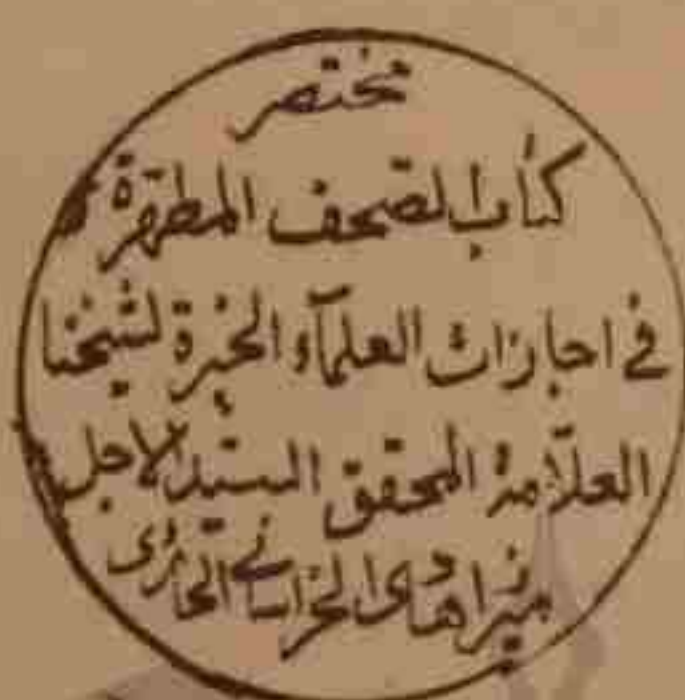 مختصر
كتاب الصحف المطهرة
في اجازات العلمآء الخيرة لشيخنا
العلّامة المحقق السيّد الاجل
ميرزا هادى الخراساني الحائرى